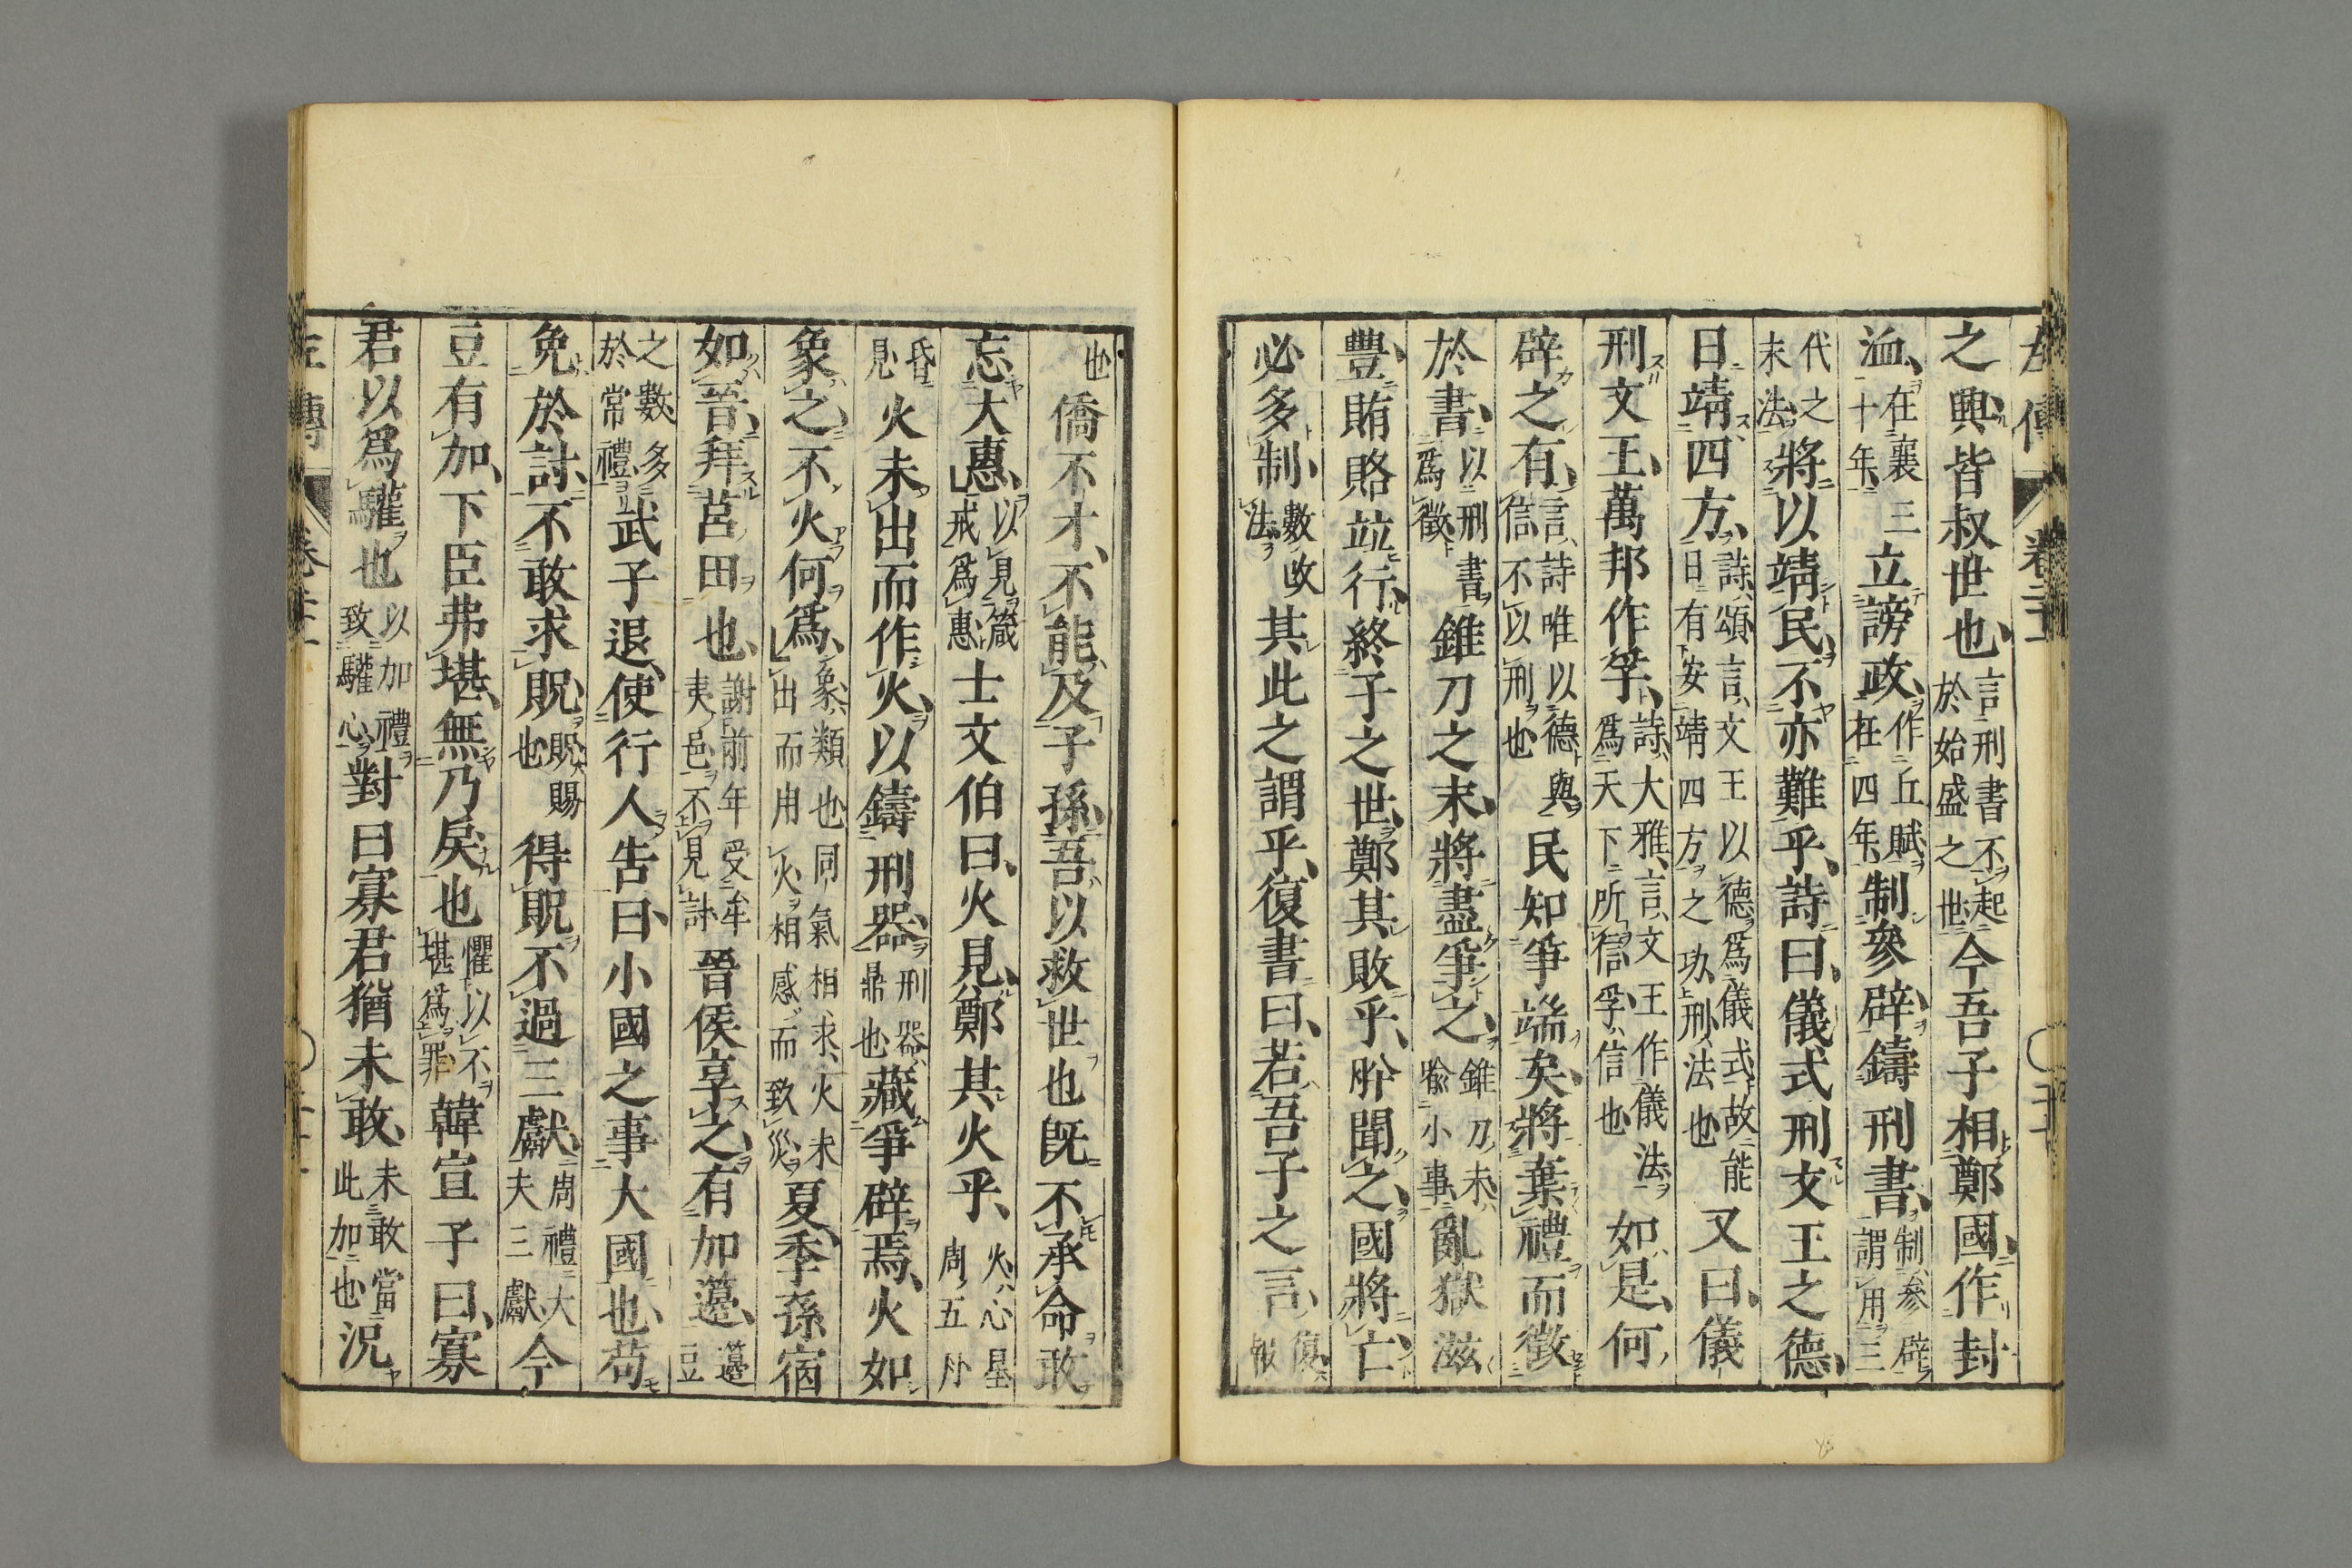 之興皆叔世也言刑書不起於始盛之世今吾子相鄭國作封
洫在襄三十年立謗政作丘賦在四年制參辟鑄刑書制參辟謂用三
代之末法將以靖民不亦難乎詩曰儀式刑文王之德
日靖四方詩頌言文王以德爲儀式故能日有安靖四方之功刑法也又曰儀
刑文王萬邦作孚詩大雅言文王作儀法爲天下所信孚信也如是何
辟之有言詩唯以德與信不以刑也民知爭端矣將棄禮而徵
於書以刑書爲徵錐刀之末將盡爭之錐刀末喻小事亂獄滋
豐賄賂竝行終子之世鄭其敗乎肸聞之國將亡
必多制數改法其此之謂乎復書曰若吾子之言復報
也僑不才不能及子孫吾以救世也既不承命敢
忘大惠以見箴戒爲惠士文伯曰火見鄭其火乎火心星周五月
昏見火未出而作火以鑄刑器刑器鼎也藏爭辟焉火如
象之不火何爲象類也同氣相求火未出而用火相感而致災夏季孫宿
如晉拜莒田也謝前年受牟夷邑不見討晉侯享之有加籩籩豆
之數多於常禮武子退使行人告曰小國之事大國也苟
免於討不敢求貺貺賜也得貺不過三獻周禮大夫三獻今
豆有加下臣弗堪無乃戾也懼以不堪爲罪韓宣子曰寡
君以爲驩也以加禮致驩心對曰寡君猶未敢未敢當此加也況